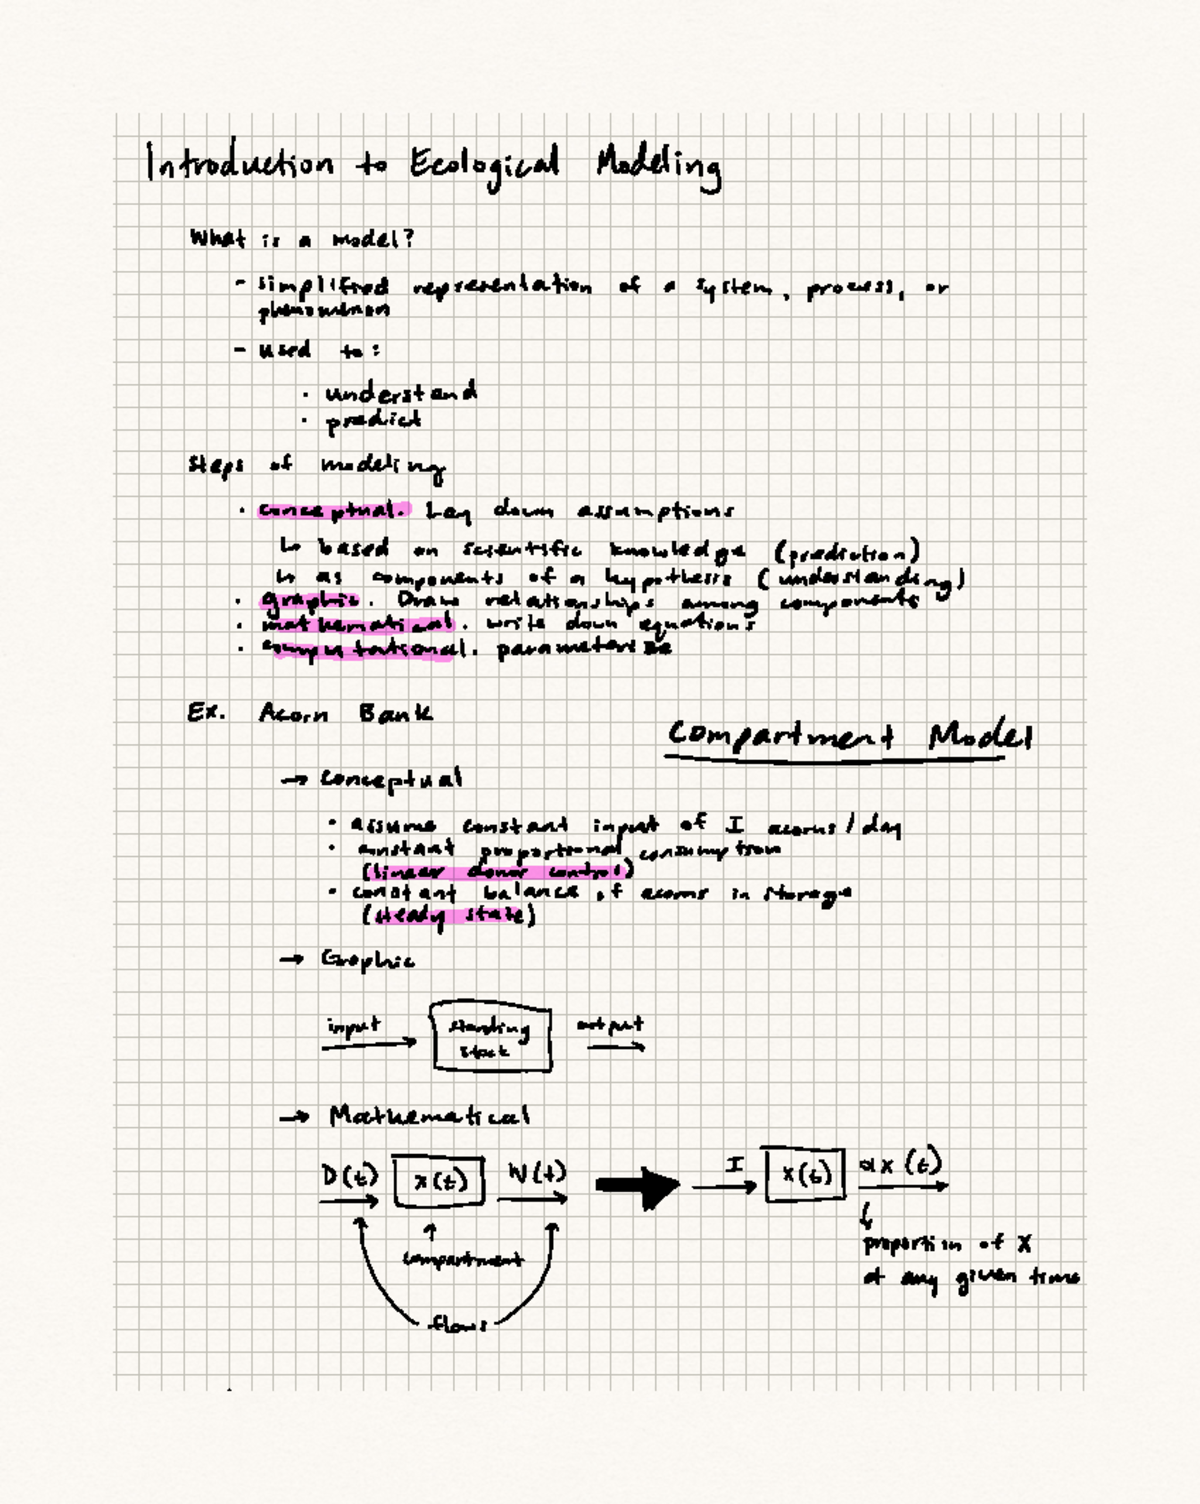 Introduction to Ecological Modeling
What is a model?
- simplified representation of a system, process, or
phenomenon
- used to:
· understand
· predict
Steps of modeling
· conceptual. Lay down assumptions
↳ based on scientific knowledge (prediction)
↳ as components of a hypothesis (understanding)
· graphic. Draw relationships among components
· mathematical. write down equations
· computational. parameterize
Ex. Acorn Bank
Compartment Model
→ Conceptual
· assume constant input of I acorns/day
· constant proportional consumption
(linear donor control)
· constant balance of acorns in storage
(steady state)
→ Graphic
input
standing
stock
output
→ Mathematical
D(t) x(t) W(t)
I x(t) αx(t)
compartment
flows
proportion of X
at any given time